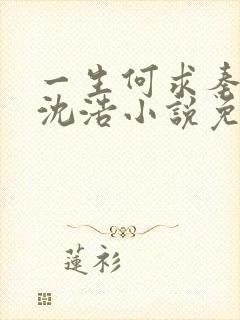 一生何求秦
沈浩小說免
蓮衫